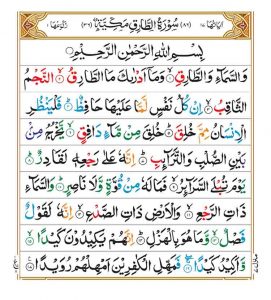 سُوْرَةُ الطَّارِقِ مَكِّيَّةٌ
بِسْمِ اللهِ الرَّحْمٰنِ الرَّحِيْمِ
وَالسَّمَآءِ وَالطَّارِقِ ۙ﴿۱﴾ وَمَاۤ اَدْرٰىكَ مَا الطَّارِقُ ۙ﴿۲﴾ النَّجْمُ
الثَّاقِبُ ۙ﴿۳﴾ اِنْ كُلُّ نَفْسٍ لَّمَّا عَلَيْهَا حَافِظٌ ؕ﴿۴﴾ فَلْيَنْظُرِ
الْاِنْسَانُ مِمَّ خُلِقَ ؕ﴿۵﴾ خُلِقَ مِنْ مَّآءٍ دَافِقٍ ۙ﴿۶﴾ يَّخْرُجُ مِنْۢ
بَيْنِ الصُّلْبِ وَالتَّرَآئِبِ ؕ﴿۷﴾ اِنَّهٗ عَلٰى رَجْعِهٖ لَقَادِرٌ ؕ﴿۸﴾
يَوْمَ تُبْلَى السَّرَآئِرُ ۙ﴿۹﴾ فَمَا لَهٗ مِنْ قُوَّةٍ وَّلَا نَاصِرٍ ؕ﴿۱۰﴾ وَالسَّمَآءِ
ذَاتِ الرَّجْعِ ۙ﴿۱۱﴾ وَالْاَرْضِ ذَاتِ الصَّدْعِ ۙ﴿۱۲﴾ اِنَّهٗ لَقَوْلٌ
فَصْلٌ ۙ﴿۱۳﴾ وَّمَا هُوَ بِالْهَزْلِ ؕ﴿۱۴﴾ اِنَّهُمْ يَكِيْدُوْنَ كَيْدًا ۙ﴿۱۵﴾
وَّاَكِيْدُ كَيْدًا ۚۖ﴿۱۶﴾ فَمَهِّلِ الْكٰفِرِيْنَ اَمْهِلْهُمْ رُوَيْدًا ﴿۱۷﴾